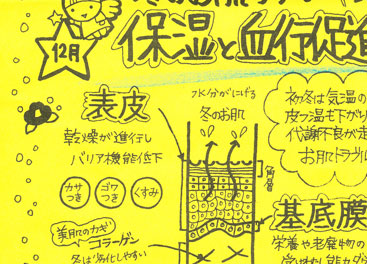 12月
保湿と血行促進
表皮
乾燥が進行し
バリア機能低下
カサつき
ゴワつき
くすみ
美肌のカギ
コラーゲン
冬は劣化しやすい
水分がにげる
冬のお肌
角層
初冬は気温の
皮フ温も下がり
代謝不良が
お肌トラブル
基底膜
栄養や老廃物の